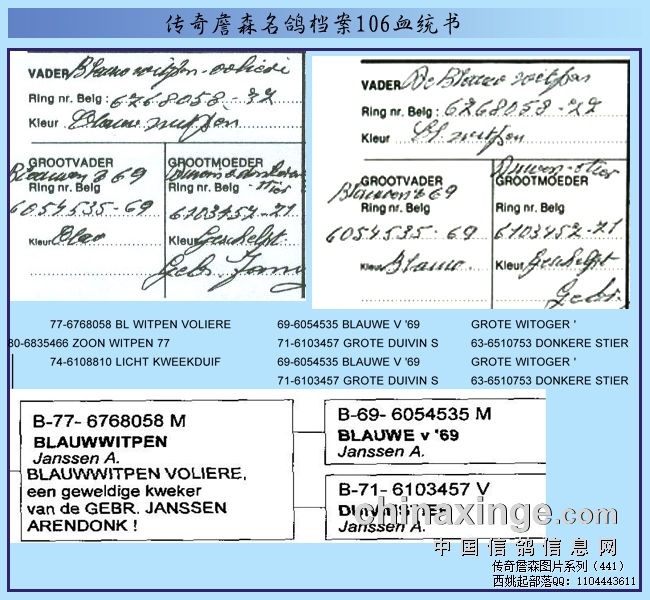 传奇詹森名鸽档案106血统书
VADER Blauw witpen
Ring nr. Belg : 6768058-77
Kleur Blauw witpen
GROOTVADER
Blauwen 69
Ring nr. Belg
6054535-69
Kleur Blauw
GROOTMOEDER
Ring nr. Belg
6103457-71
Kleur Geschelpt
Gebr.
VADER De Blauw witpen
Ring nr. Belg : 6768058-77
Kleur Bl. witpen
GROOTVADER
Blauwen 69
Ring nr. Belg
6054535-69
Kleur Blauw.
Duiven-stier
GROOTMOEDER
Ring nr. Belg
6103457-71
Kleur Geschelpt
Gebr.
77-6768058 BL WITPEN VOLIERE 69-6054535 BLAUWE V '69 GROTE WITOGER '
80-6835466 ZOON WITPEN 77 71-6103457 GROTE DUIVIN S 63-6510753 DONKERE STIER
74-6108810 LICHT KWEEKDUIF 69-6054535 BLAUWE V '69 GROTE WITOGER '
71-6103457 GROTE DUIVIN S 63-6510753 DONKERE STIER
B-77- 6768058 M
BLAUWWITPEN
Janssen A.
BLAUWWITPEN VOLIERE,
een geweldige kweker
van de GEBR. JANSSEN
ARENDONK !
B-69- 6054535 M
BLAUWE v '69
Janssen A.
B-71- 6103457 V
Janssen A.
chinaxinge.com
中国信鸽信息网
传奇詹森图片系列（441）
西姚起部落QQ：1104443611